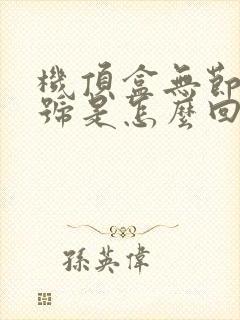 機頂盒無節
號是怎麼回
孫英偉